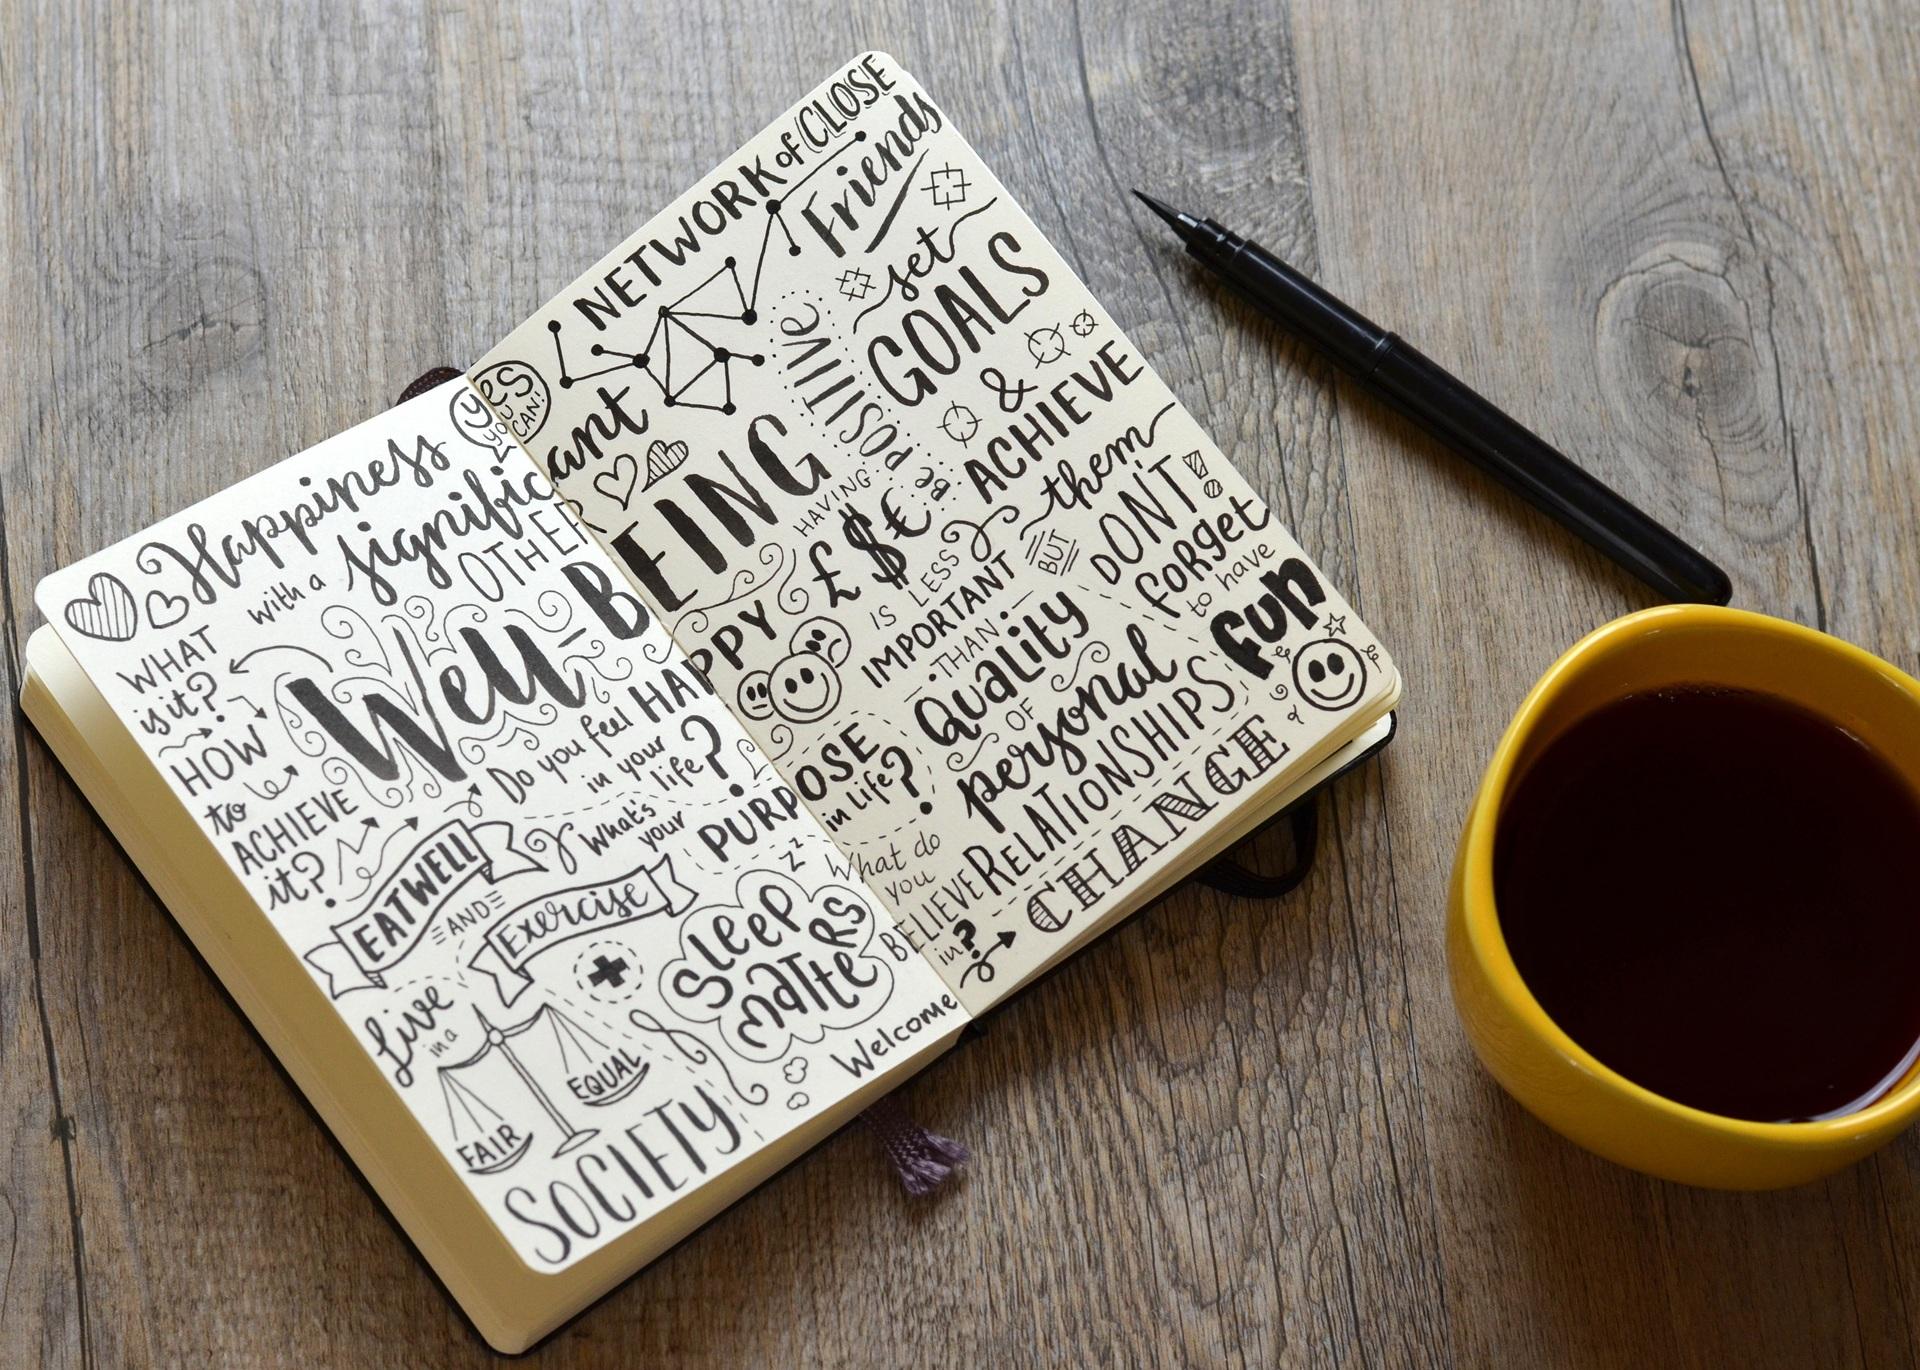 NETWORK of CLOSE
Friends
set
GOALS
&
ACHIEVE
them
BUT
DON'T!
forget
to have
fun
Yes
YOU
CAN!
Happiness
with a significant
OTHER
BE POSITIVE
Well-BEING
WHAT
is it?
HOW
to
ACHIEVE
it?
HAVING
£ $ €
IS LESS
IMPORTANT
THAN
Quality
OF
personal
RELATIONSHIPS
Do you feel HAPPY
in your
life?
What's
your
PURPOSE
in life?
EATWELL
AND
Exercise
zzz
SLEEP
MATTERS
What do
you
BELIEVE
in?
Welcome
CHANGE
Live
in a
FAIR
EQUAL
SOCIETY